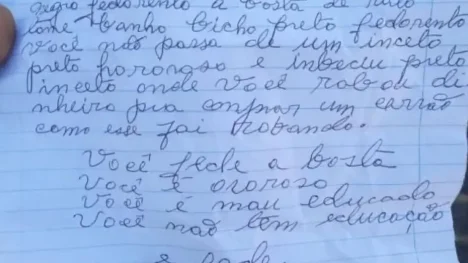 fedorento a bosta de
tome banho bicho preto fedorento
você não passa de um inceto
preto hororoso e inbeciu preto
inceto onde você robou di
nheiro pra comprar um carrão
como esse foi robando.
Você fede a bosta
Você é ororoso
você é mau educado
você não tem educação